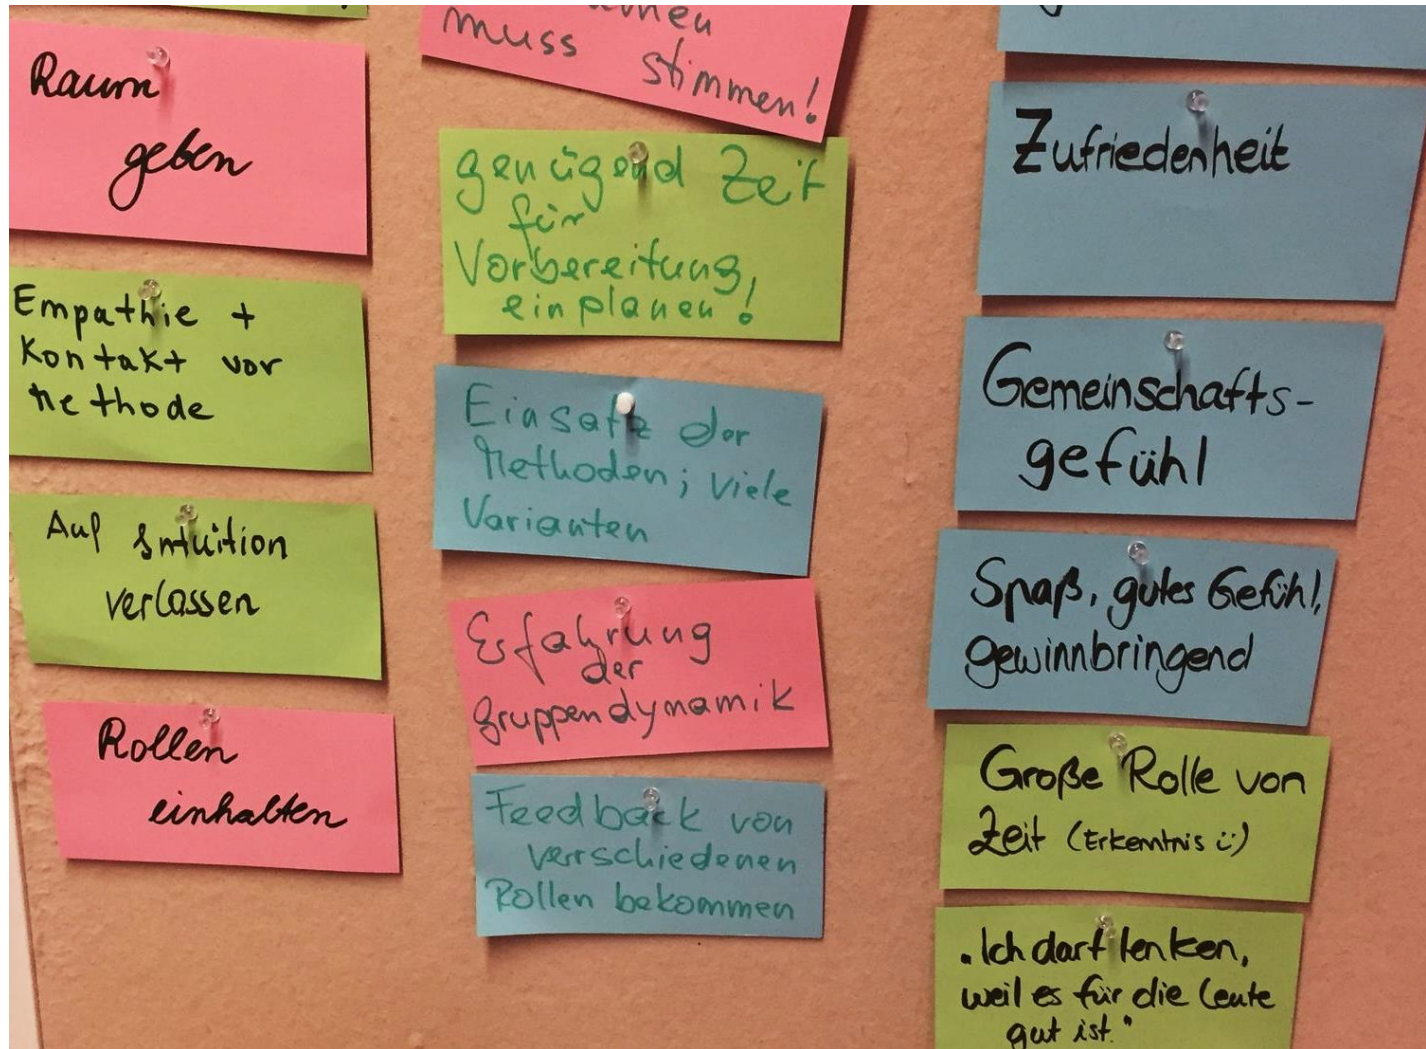 Raum
geben
Empathie +
Kontakt vor
Methode
Auf Intuition
verlassen
Rollen
einhalten
muss stimmen!
genügend Zeit
für
Vorbereitung,
einplanen!
Einsatz der
Methoden; viele
Varianten
Erfahrung
der
gruppendynamik
Feedback von
verschiedenen
Rollen bekommen
Zufriedenheit
Gemeinschafts-
gefühl
Spaß, gutes Gefühl,
gewinnbringend
Große Rolle von
Zeit (Erkenntnis ü)
"Ich darf lenken,
weil es für die Leute
gut ist."